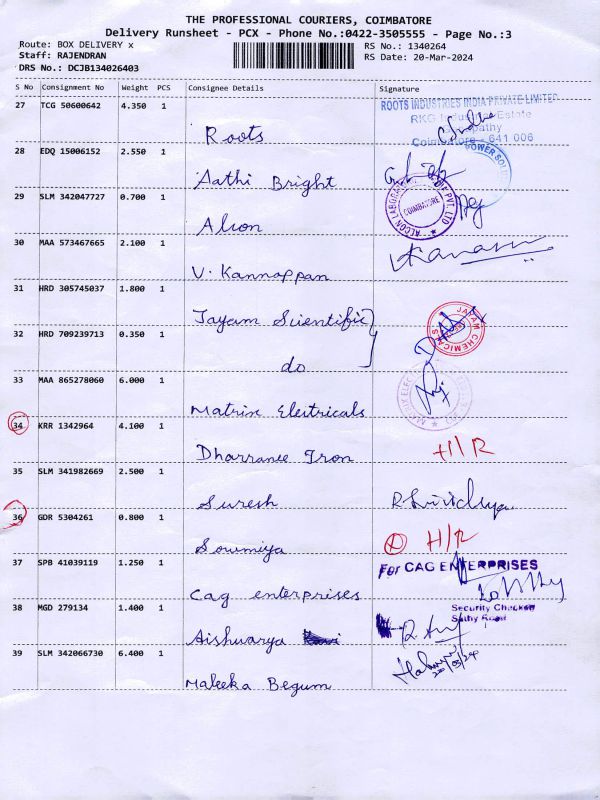 THE PROFESSIONAL COURIERS, COIMBATORE
Delivery Runsheet - PCX - Phone No.:0422-3505555 - Page No.:3
Route: BOX DELIVERY x
RS No.: 1340264
Staff: RAJENDRAN
RS Date: 20-Mar-2024
DRS No.: DCJB134026403
S No Consignment No Weight PCS Consignee Details Signature
27 TCG 50600642 4.350 1
ROOTS INDUSTRIES INDIA PRIVATE LIMITED
RKG Industrial Estate
Coimbatore - 641 006
Roots
28 EDQ 15006152 2.550 1
POWER
Aathi Bright
29 SLM 342047727 0.700 1
COIMBATORE
PVT. LTD
Alion
30 MAA 573467665 2.100 1
Kannan
V. Kannappan
31 HRD 305745037 1.800 1
JAYAM CHEMICALS
Jayam Scientific
32 HRD 709239713 0.350 1
do
33 MAA 865278060 6.000 1
Matrin Electricals
34 KRR 1342964 4.100 1
H/R
Dharranee Iron
35 SLM 341982669 2.500 1
Suresh
36 GDR 5304261 0.800 1
H/R
Sowmiya
37 SPB 41039119 1.250 1
For CAG ENTERPRISES
Cag enterprises
38 MGD 279134 1.400 1
Security Checked
Sathy Road
Aishwarya
39 SLM 342066730 6.400 1
20/03/24
Maleeka Begum